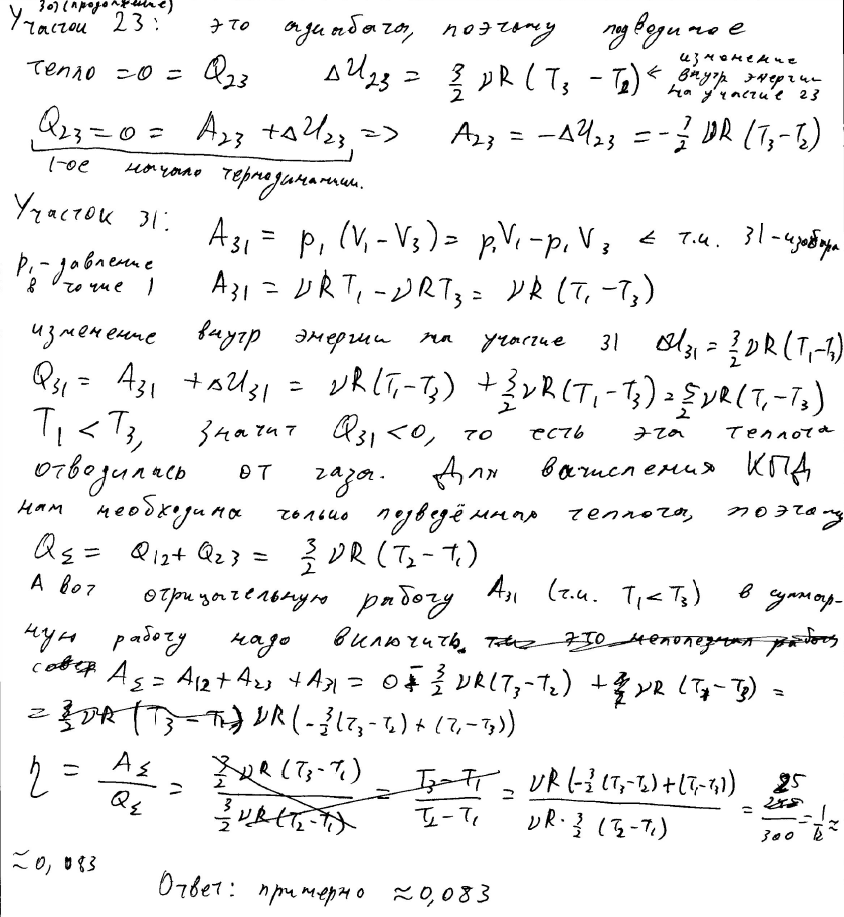 30) (продолжение)
Участок 23: это адиабата, поэтому подводимое
тепло = 0 = Q₂₃ ΔU₂₃ = 3/2 νR (T₃ − T₂) ← изменение внутр энергии на участке 23
Q₂₃ = 0 = A₂₃ + ΔU₂₃ => A₂₃ = −ΔU₂₃ = −3/2 νR (T₃−T₂)
1-ое начало термодинамики.
Участок 31: A₃₁ = p₁ (V₁ − V₃) = p₁V₁ − p₁V₃ ← т.к. 31 - изобара
p₁ - давление в точке 1 A₃₁ = νRT₁ − νRT₃ = νR (T₁ − T₃)
изменение внутр энергии на участке 31 ΔU₃₁ = 3/2 νR (T₁−T₃)
Q₃₁ = A₃₁ + ΔU₃₁ = νR(T₁−T₃) + 3/2 νR (T₁−T₃) = 5/2 νR (T₁−T₃)
T₁ < T₃, значит Q₃₁ < 0, то есть эта теплота
отводилась от газа. Для вычисления КПД
нам необходима только подведённая теплота, поэтому
Q_Σ = Q₁₂ + Q₂₃ = 3/2 νR (T₂ − T₁)
А вот отрицательную работу A₃₁ (т.к. T₁ < T₃) в суммар-
ную работу надо включить. это неполезная работа
A_Σ = A₁₂ + A₂₃ + A₃₁ = 0 − 3/2 νR(T₃−T₂) + νR (T₁−T₃) =
= 3/2 νR (T₃ − T₁) νR (−3/2 (T₃−T₂) + (T₁−T₃))
η = A_Σ / Q_Σ = 3/2 νR (T₃−T₁) / 3/2 νR (T₂−T₁) = T₃ − T₁ / T₂ − T₁ = νR (−3/2 (T₃−T₂) + (T₁−T₃)) / νR · 3/2 (T₂−T₁) = 25/300 = 1/12 ≈
≈ 0,083
Ответ: примерно ≈ 0,083